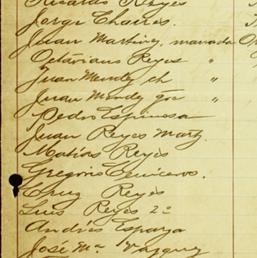 Ricardo Reyes
Jorge Chaires.
Juan Martinez, manada
Octaviano Reyes "
Juan Mendez ch "
Juan Mendez gde "
Pedro Espinosa
Juan Reyes Martz.
Matias Reyes
Gregorio
Cruz Reyes
Luis Reyes 2º
Andrés Esparza
José Mª Vazquez